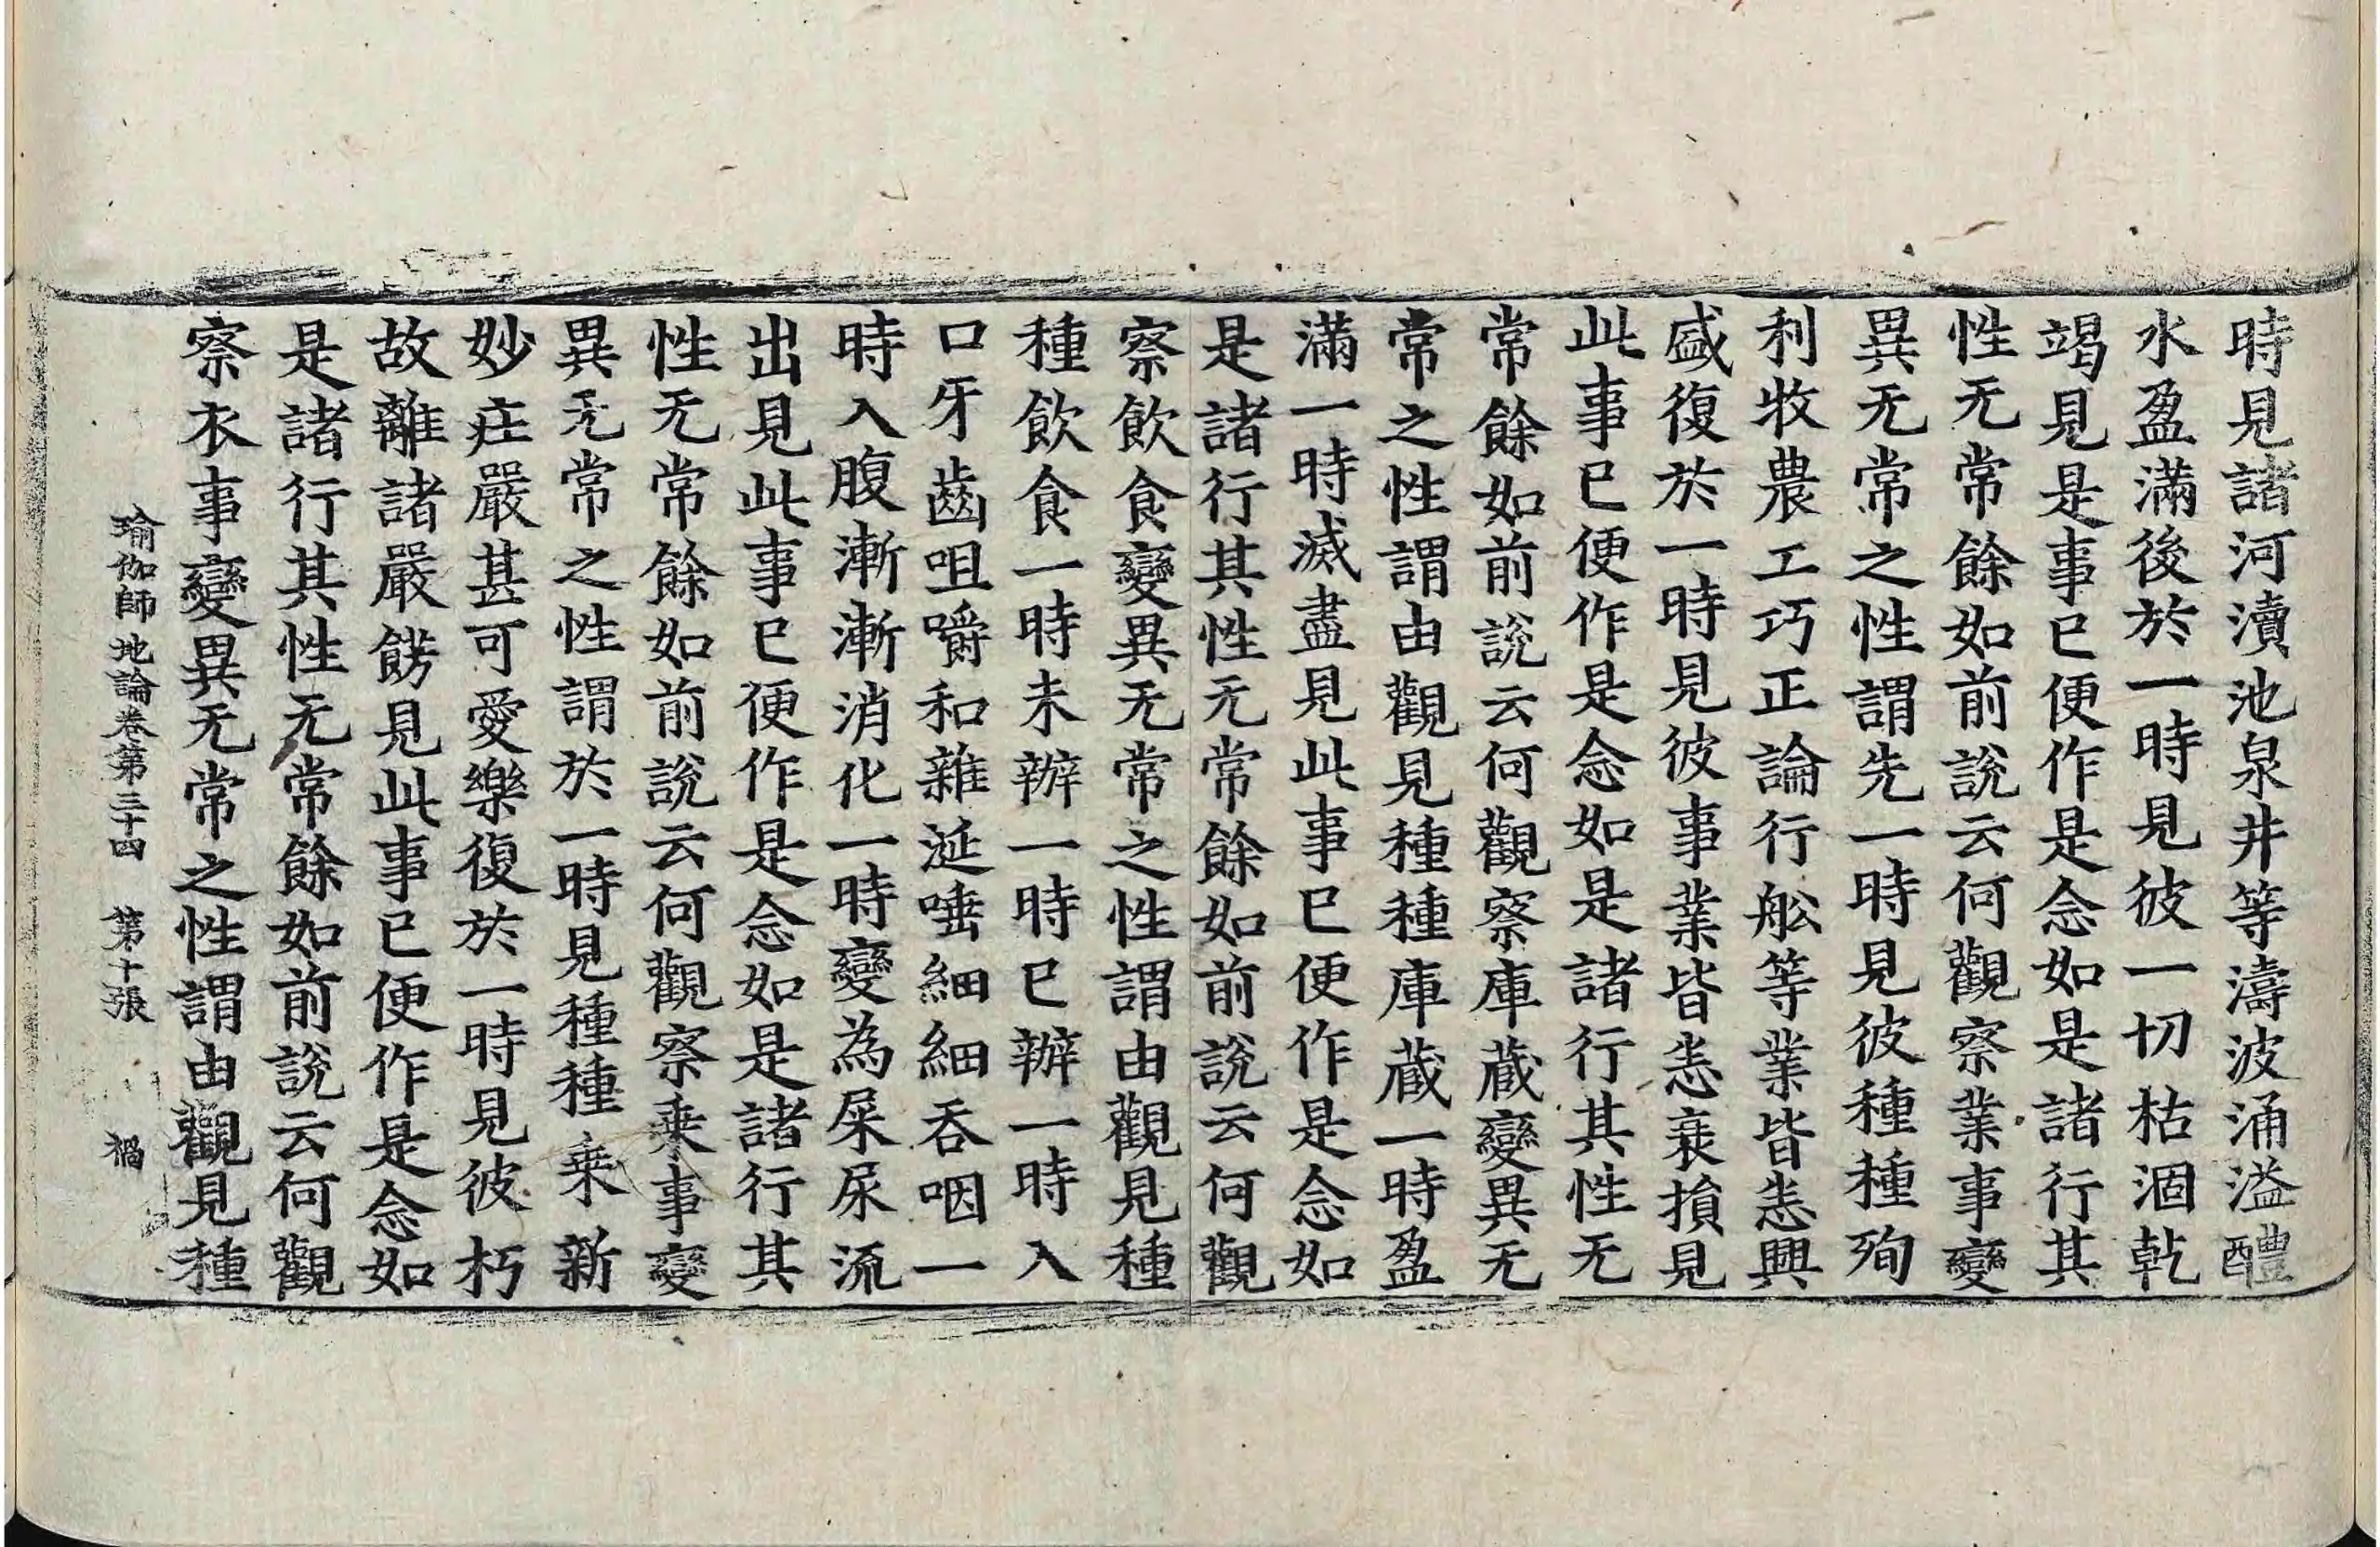 時見諸河瀆池泉井等濤波涌溢醴
水盈滿後於一時見彼一切枯涸乾
竭見是事已便作是念如是諸行其
性无常餘如前說云何觀察業事變
異无常之性謂先一時見彼種種殉
利牧農工巧正論行舩等業皆悉興
盛復於一時見彼事業皆悉衰損見
此事已便作是念如是諸行其性无
常餘如前說云何觀察庫蔵變異无
常之性謂由觀見種種庫蔵一時盈
滿一時滅盡見此事已便作是念如
是諸行其性无常餘如前說云何觀
察飲食變異无常之性謂由觀見種
種飲食一時未辦一時已辦一時入
口牙齒咀嚼和雜涎唾細細吞咽一
時入腹漸漸消化一時變為屎尿流
出見此事已便作是念如是諸行其
性无常餘如前說云何觀察乗事變
異无常之性謂於一時見種種乗新
妙庄嚴甚可愛樂復於一時見彼朽
故離諸嚴餝見此事已便作是念如
是諸行其性无常餘如前說云何觀
察衣事變異无常之性謂由觀見種
瑜伽師地論卷第三十四 第十張 禍